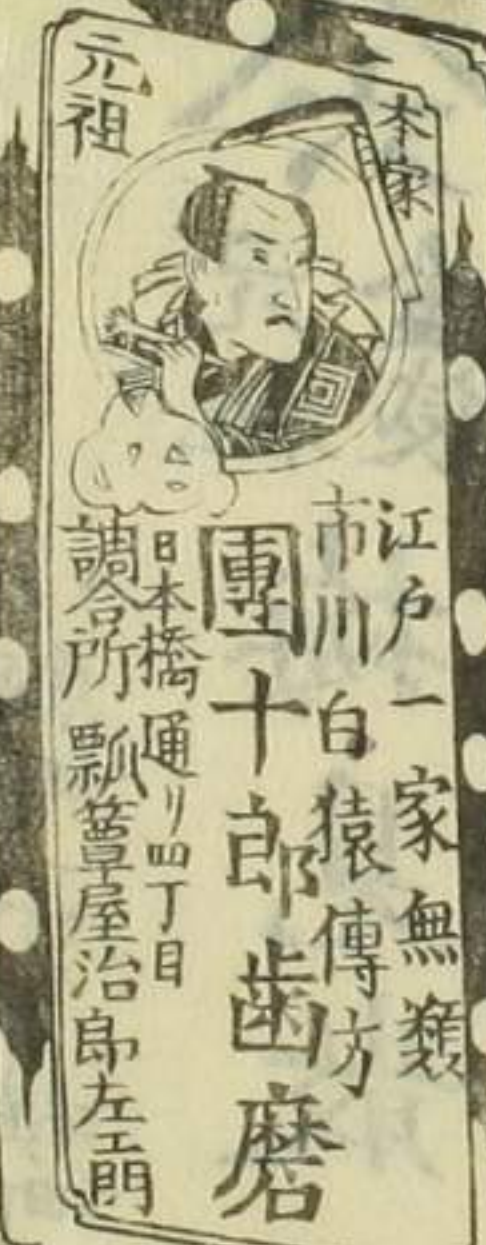 本家
元祖
江戸一家無類
市川白猿傳方
團十郎歯磨
日本橋通リ四丁目
調合所 瓢簞屋治郎左エ門